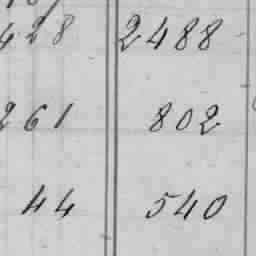 428 2488
261 802
44 540